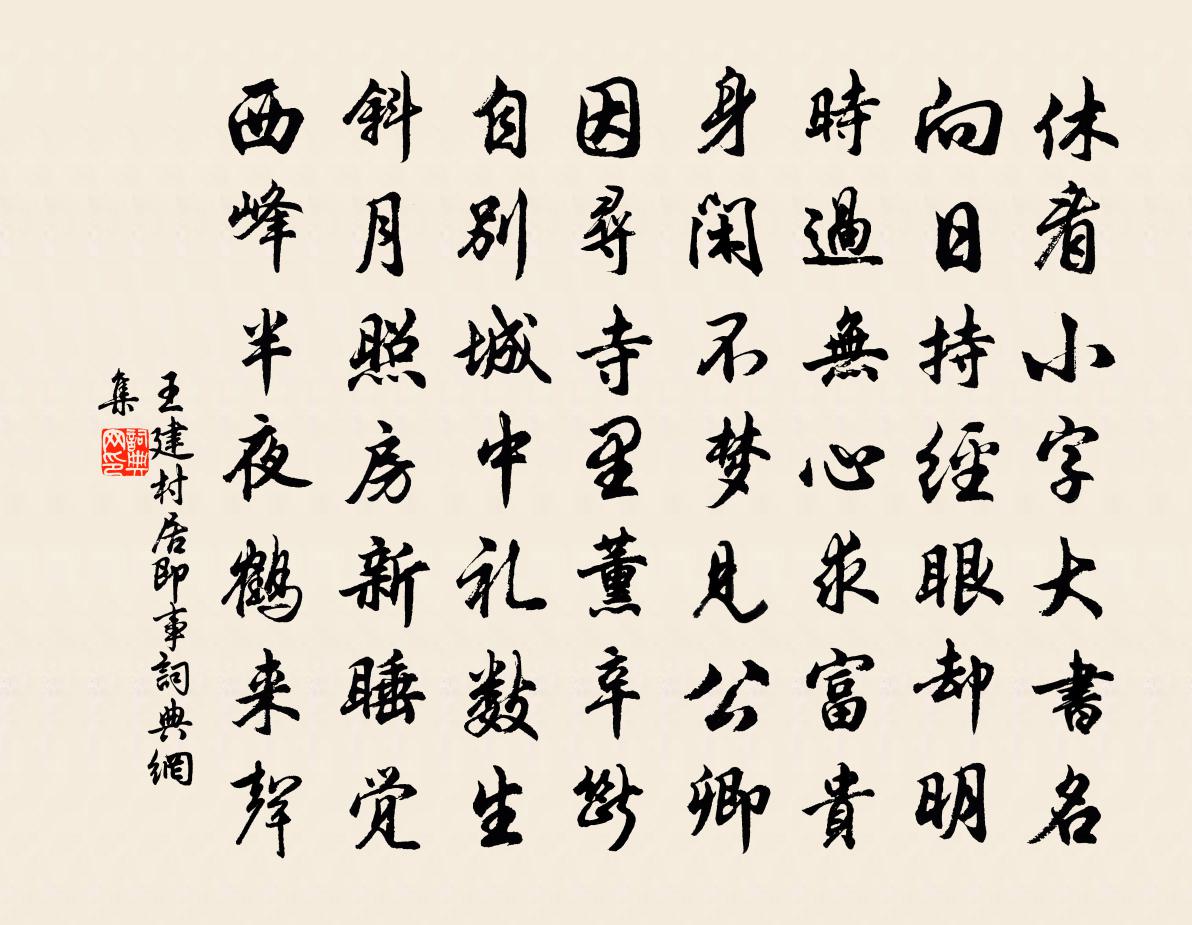 休看小字大書名
向日持經眼却明
時過無心求富貴
身閑不梦見公卿
因尋寺里薰辛斷
自别城中礼数生
斜月照房新睡觉
西峰半夜鶴来聲
王建村居即事詞典網
集
詞典
网印